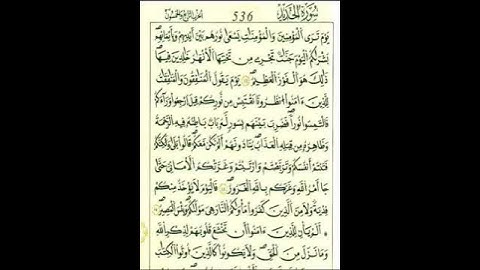 سُورَةُ الْحَدِيدِ 536 الحزب الرابع والخمسون
يَوْمَ تَرَى الْمُومِنِينَ وَالْمُومِنَٰتِ يَسْعَىٰ نُورُهُم بَيْنَ أَيْدِيهِمْ وَبِأَيْمَٰنِهِم
بُشْرَىٰكُمُ الْيَوْمَ جَنَّٰتٌ تَجْرِى مِن تَحْتِهَا الْأَنْهَٰرُ خَٰلِدِينَ فِيهَا
ذَٰلِكَ هُوَ الْفَوْزُ الْعَظِيمُ يَوْمَ يَقُولُ الْمُنَٰفِقُونَ وَالْمُنَٰفِقَٰتُ
لِلَّذِينَ ءَامَنُوا انظُرُونَا نَقْتَبِسْ مِن نُّورِكُمْ قِيلَ ارْجِعُوا وَرَآءَكُمْ
فَالْتَمِسُوا نُورًا فَضُرِبَ بَيْنَهُم بِسُورٍ لَّهُ بَابٌ بَاطِنُهُ فِيهِ الرَّحْمَةُ
وَظَٰهِرُهُ مِن قِبَلِهِ الْعَذَابُ يُنَادُونَهُمْ أَلَمْ نَكُن مَّعَكُمْ قَالُوا بَلَىٰ وَلَٰكِنَّكُمْ
فَتَنتُمْ أَنفُسَكُمْ وَتَرَبَّصْتُمْ وَارْتَبْتُمْ وَغَرَّتْكُمُ الْأَمَانِىُّ حَتَّىٰ
جَا أَمْرُ اللَّهِ وَغَرَّكُم بِاللَّهِ الْغَرُورُ فَالْيَوْمَ لَا يُؤْخَذُ مِنكُمْ
فِدْيَةٌ وَلَا مِنَ الَّذِينَ كَفَرُوا مَأْوَىٰكُمُ النَّارُ هِىَ مَوْلَىٰكُمْ وَبِيسَ الْمَصِيرُ
أَلَمْ يَانِ لِلَّذِينَ ءَامَنُوا أَن تَخْشَعَ قُلُوبُهُمْ لِذِكْرِ اللَّهِ
وَمَا نَزَلَ مِنَ الْحَقِّ وَلَا يَكُونُوا كَالَّذِينَ أُوتُوا الْكِتَٰبَ